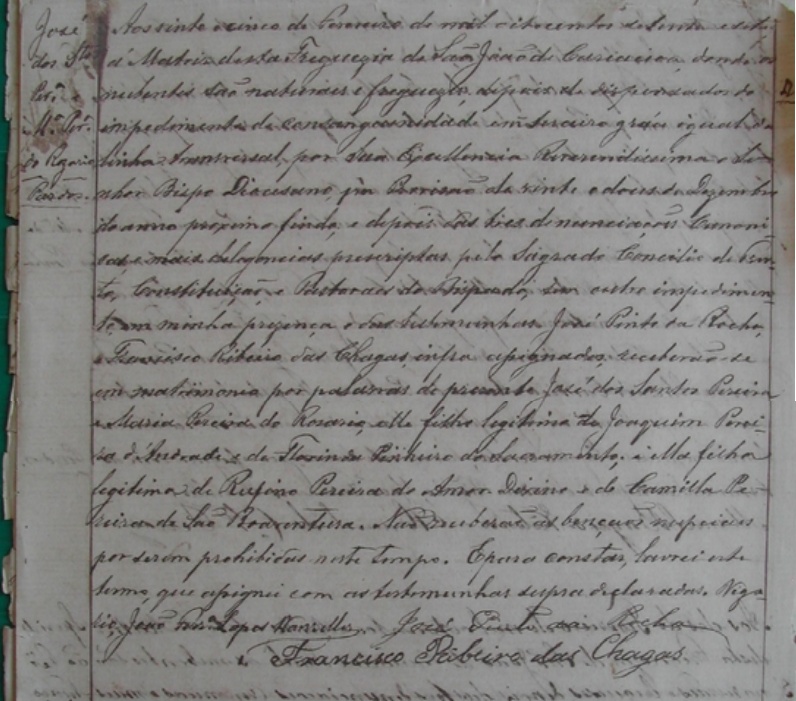 José
dos Stos
Perª e
Mª Perª
do Rozario
Pardos
Aos vinte e cinco de Fevereiro de mil oitocentos setenta e sete
á Matriz desta Freguezia de São João de Cariacica, donde os
nubentes são naturaes e freguezes, depois de dispensados do
impedimento de consanguinidade em terceiro gráo igual da
linha transversal, por Sua Excellencia Reverendissima o Se-
nhor Bispo Diocesano, por Provisão de vinte e dous de Dezembro
do anno proximo findo, e depois das tres denunciações Canoni-
cas e mais deligencias prescriptas pelo Sagrado Concilio de Tren-
to, Constituição e Pastoraes do Bispado, sem outro impedimen-
to, em minha prezença e das testemunhas José Pinto da Rocha,
e Francisco Ribeiro das Chagas, infra assignados, receberão-se
em matrimonio por palavras de prezente José dos Santos Pereira
e Maria Pereira do Rosario, elle filho legitimo de Joaquim Perei-
ra d'Andrade e de Florinda Pinheiro do Sacramento; e ella filha
legitima de Rufino Pereira do Amor Divino e de Camilla Pe-
reira de São Boaventura. Não receberão as bençãos nupciaes
por serem prohibidas neste tempo. E para constar, lavrei este
termo, que assignei com as testemunhas supra declaradas. Viga-
rio, João Lopes
José Pinto da Rocha
Francisco Ribeiro das Chagas